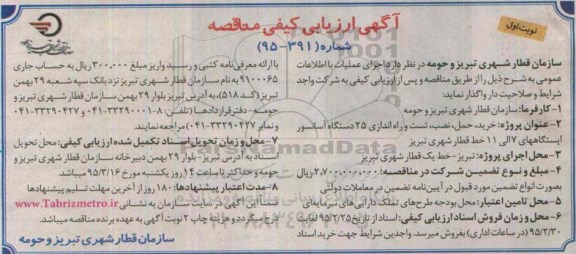 آگهی ارزیابی کیفی مناقصه
شماره (۳۹۱-۹۵)
نوبت اول
سازمان قطار شهری تبریز و حومه در نظر دارد اجرای عملیات با اطلاعات
عمومی به شرح ذیل را از طریق مناقصه و پس از ارزیابی کیفی به شرکت واجد
شرایط و صلاحیت دار واگذار نماید:
۱- کارفرما: سازمان قطار شهری تبریز و حومه
۲- عنوان پروژه: خرید، حمل، نصب، تست و راه اندازی ۲۵ دستگاه آسانسور
ایستگاههای ۷ الی ۱۱ خط یک قطار شهری تبریز
۳- محل اجرای پروژه: تبریز- خط یک قطار شهری تبریز
۴- مبلغ و نوع تضمین شرکت در مناقصه: ۲،۷۰۰،۰۰۰،۰۰۰ ریال
بصورت انواع تضمین مورد قبول در آیین نامه تضمین در معاملات دولتی
۵- محل تامین اعتبار: محل بودجه طرح‌های تملک دارائی های سرمایه‌ای
۶- محل و زمان فروش اسناد ارزیابی کیفی: اسناد از تاریخ ۹۵/۲/۲۵ لغایت
۹۵/۲/۳۰ (در ساعات اداری) بفروش میرسد. واجدین شرایط جهت خرید اسناد
با ارائه معرفی نامه کتبی و رسید واریز مبلغ ۳۰۰،۰۰۰ ریال به حساب جاری
۹۱۰۰۰۶۵ به نام سازمان قطار شهری تبریز نزد بانک سپه شعبه ۲۹ بهمن
تبریز (کد ۵۱۸)، به آدرس تبریز بلوار ۲۹ بهمن سازمان قطار شهری تبریز و
حومه - دفتر قرارداد‌ها (تلفن: ۸-۳۳۲۹۰۰۰۱-۰۴۱ و ۳۳۲۹۰۴۳۷-۰۴۱
و نمابر ۳۳۲۹۰۴۳۷-۰۴۱) مراجعه نمایند.
۷- محل و زمان تحویل اسناد تکمیل شده ارزیابی کیفی: محل تحویل
اسناد به آدرس تبریز- بلوار ۲۹ بهمن دبیرخانه سازمان قطار شهری تبریز و
حومه و حداکثر تا ساعت ۱۴ روز یکشنبه مورخ ۹۵/۳/۱۶ میباشد.
۸- مدت اعتبار پیشنهادها: ۱۸۰ روز از آخرین مهلت تسلیم پیشنهادها
ضمنا این آگهی در سایت سازمان به نشانی www.Tabrizmetro.ir
درج میگردد و هزینه چاپ ۲ نوبت آگهی به عهده برنده مناقصه میباشد.
سازمان قطار شهری تبریز و حومه
ParsNamadData